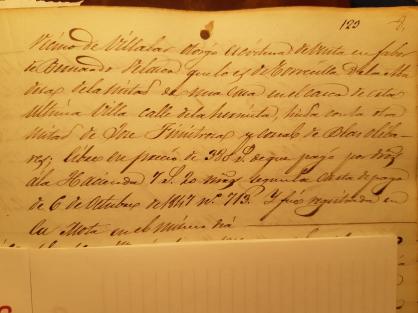 123
vecino de Villalar otorgó escritura de venta en favor
de Bernardo Velasco que lo es de Torrecilla de la
mas de la mitad de una casa en el casco de esta
ultima villa calle de la hermita, linda con la otra
mitad de Jose y casas de Blas
libre en precio de 320 r.s de que pagó por
á la Hacienda 7 r.s 20 segun la carta de pago
de 6 de Octubre de 1847 nº 713. Y fué registrada en
la Mota en el mismo dia